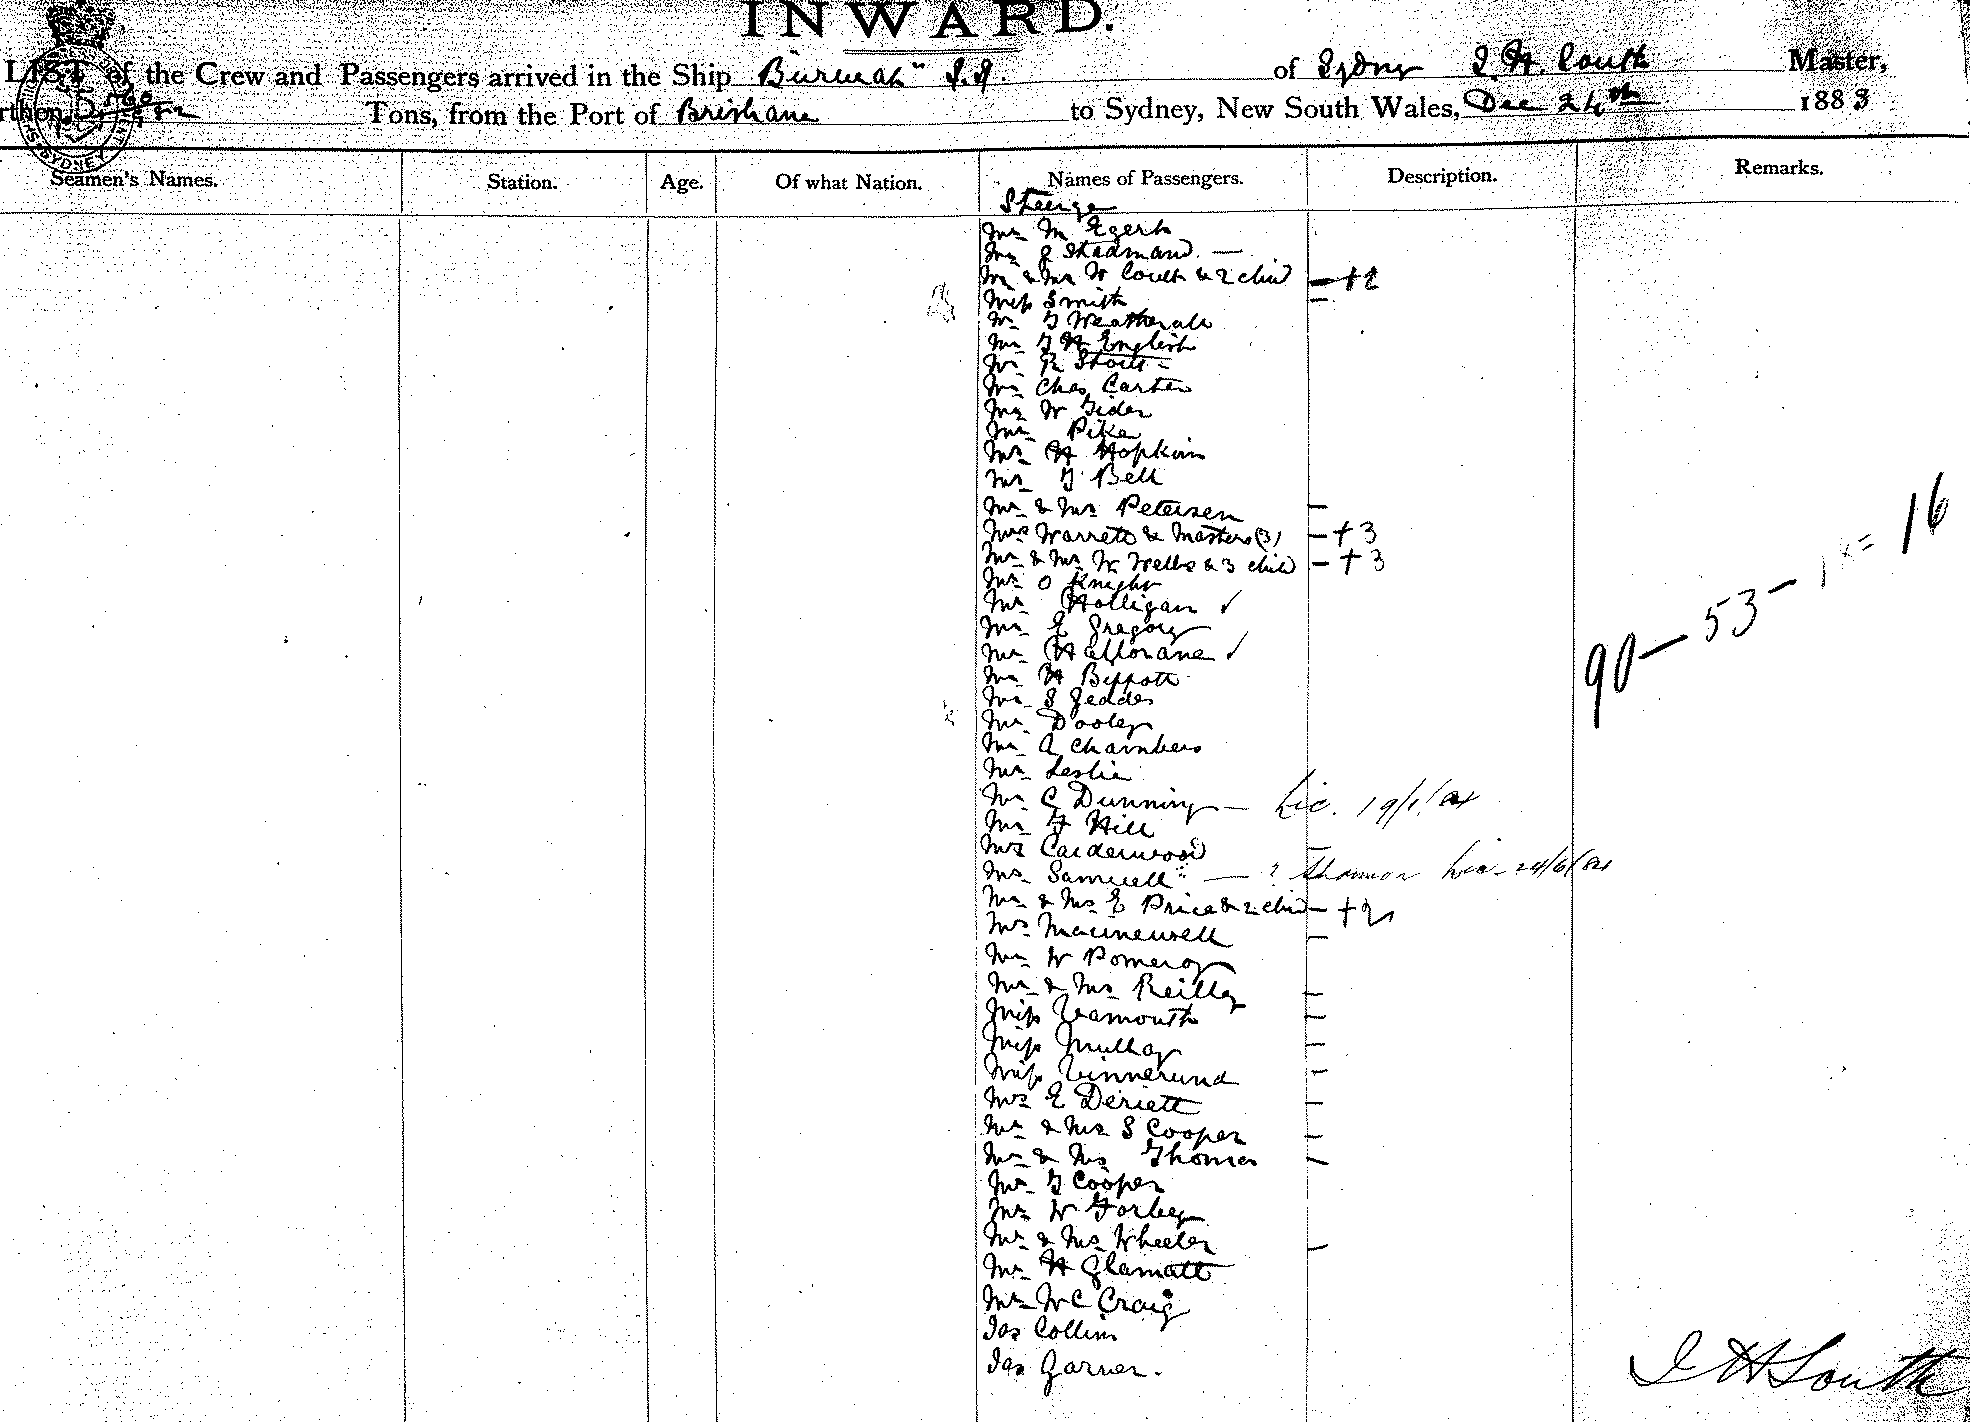 INWARD.
LIST of the Crew and Passengers arrived in the Ship "Burwah" S.S. of Sydney J. H. South Master,
Burthen Tons, from the Port of Brisbane to Sydney, New South Wales, Dec 24th 1883
Seamen's Names. Station. Age. Of what Nation. Names of Passengers. Description. Remarks.
Steerage
Mr M Egert
Mr J Steadman —
Mr & Mrs W Coulth & 2 chid — +2
Miss Smith —
Mr G Weatherall
Mr G H English
Mr R Stout
Mr Chas Carter
Mr W Gider
Mr Pike
Mr H Hopkin
Mr G Bell
Mr & Mrs Petersen —
Mrs Warrett & Masters (3) — + 3
Mr & Mrs W Wells & 3 child — + 3
Mr O Knight
Mr Holligan ✓
Mr E Gregory
Mr Hallorane ✓
Mr H Beppott
Mr S Geddes
Mr Dooley
Mr A Chambers
Mr Leslie
Mr C Dunning — Lic. 19/1/84
Mr F Hill
Mrs Calderwood —
Mr Samuell — ? Shannon Lic 24/6/84
Mr & Mrs E Price & 2 chid — + 2
Mrs —
Mr W Pomeroy
Mr & Mrs Reilly —
Miss Yeamouth —
Miss Mullay —
Miss —
Mrs E Deriett —
Mr & Mrs S Cooper —
Mr & Mrs Thomas —
Mr G Cooper
Mr W Forbey
Mr & Mrs Wheeler —
Mr H Glamatt
Mr W C Craig
Jas Collins
Jas Garner.
90 — 53 — = 16
J H South